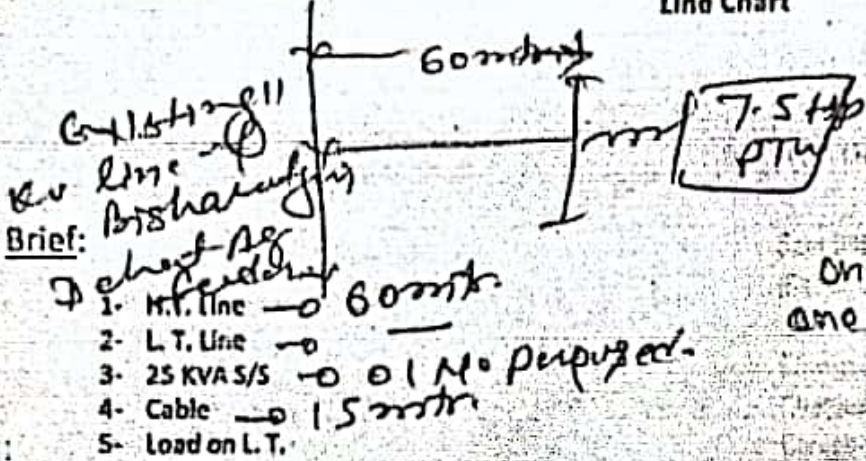 Line Chart
60 mtrs
Existing 11
KV line
7.5 HP
PTW
Brief:
Ag
feeder
1- H.T. Line 60 mtr.
2- L.T. Line
3- 25 KVA S/S 01 No purpuged.
4- Cable 15 mtr
5- Load on L.T.
on
ane